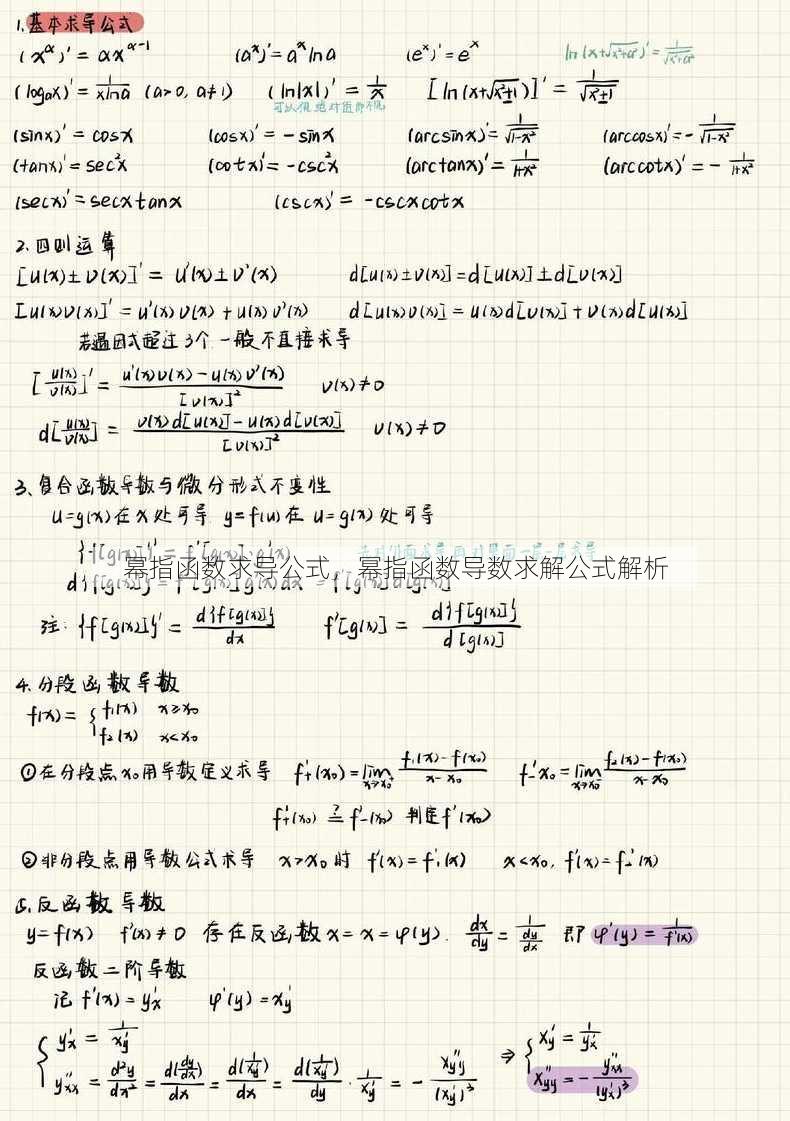 1. 基本求导公式
(x^α)' = αx^(α-1)    (a^x)' = a^x ln a    (e^x)' = e^x    ln(x+√(x²+a²))' = 1/√(x²+a²)
(log_a x)' = 1/(x ln a) (a>0, a≠1)    (ln|x|)' = 1/x    [ln(x+√(x²±1))]' = 1/√(x²±1)
(sinx)' = cosx    (cosx)' = -sinx    (arcsinx)' = 1/√(1-x²)    (arccosx)' = -1/√(1-x²)
(tanx)' = sec²x    (cotx)' = -csc²x    (arctanx)' = 1/(1+x²)    (arccotx)' = -1/(1+x²)
(secx)' = secxtanx    (cscx)' = -cscxcotx
2. 四则运算
[u(x)±v(x)]' = u'(x)±v'(x)    d[u(x)±v(x)] = d[u(x)]±d[v(x)]
[u(x)v(x)]' = u'(x)v(x)+u(x)v'(x)    d[u(x)v(x)] = u(x)d[v(x)]+v(x)d[u(x)]
若遇因式超过3个,一般不直接求导
[u(x)/v(x)]' = (u'(x)v(x)-u(x)v'(x))/[v(x)]²    v(x)≠0
d[u(x)/v(x)] = (v(x)d[u(x)]-u(x)d[v(x)])/[v(x)]²    v(x)≠0
3、复合函数导数与微分形式不变性
u=g(x)在x处可导 y=f(u)在u=g(x)处可导
{f[g(x)]}' = f'[g(x)]·g'(x)
幂指函数求导公式，幂指函数导数求解公式解析
d{f[g(x)]} = f'[g(x)]g'(x)dx = f'[g(x)]d[g(x)]
注: {f[g(x)]}' = d{f[g(x)]}/dx    f'[g(x)] = d{f[g(x)]}/d[g(x)]
4. 分段函数导数
f(x) = { f₁(x) x≥x₀
f₂(x) x<x₀
①在分段点x₀用导数定义求导 f'₊(x₀) = lim x→x₀⁺ (f₁(x)-f(x₀))/(x-x₀)    f'₋x₀ = lim x→x₀⁻ (f₂(x)-f(x₀))/(x-x₀)
f'₊(x₀) ≟ f'₋(x₀) 判定f'(x₀)
②非分段点用导数公式求导 x>x₀时 f'(x)=f'₁(x)    x<x₀, f'(x)=f'₂(x)
5. 反函数导数
y=f(x) f'(x)≠0 存在反函数x=x=φ(y). dx/dy = 1/(dy/dx) 即 φ'(y) = 1/f'(x)
反函数二阶导数
记 f'(x)=y'x    φ'(y)=x'y
{ y'x = 1/x'y    ⇒ { x'y = 1/y'x
y''xx = d²y/dx² = d(dy/dx)/dx = d(1/x'y)/dx = d(1/x'y)/dy · 1/x'y = -x''yy/(x'y)³    x''yy = -y''xx/(y'x)³